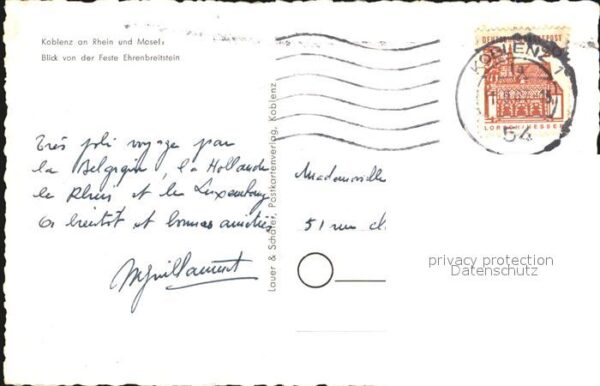 Koblenz an Rhein und Mosel,
Blick von der Feste Ehrenbreitstein
Très joli voyage par
la Belgique, la Hollande
le Rhin et le Luxembourg
à bientôt et bonnes amitiés
Lauer & Schäfer, Postkartenverlag, Koblenz
KOBLENZ 1
54
LORSCH/HESSEN
Mademoiselle
51 rue
privacy protection
Datenschutz